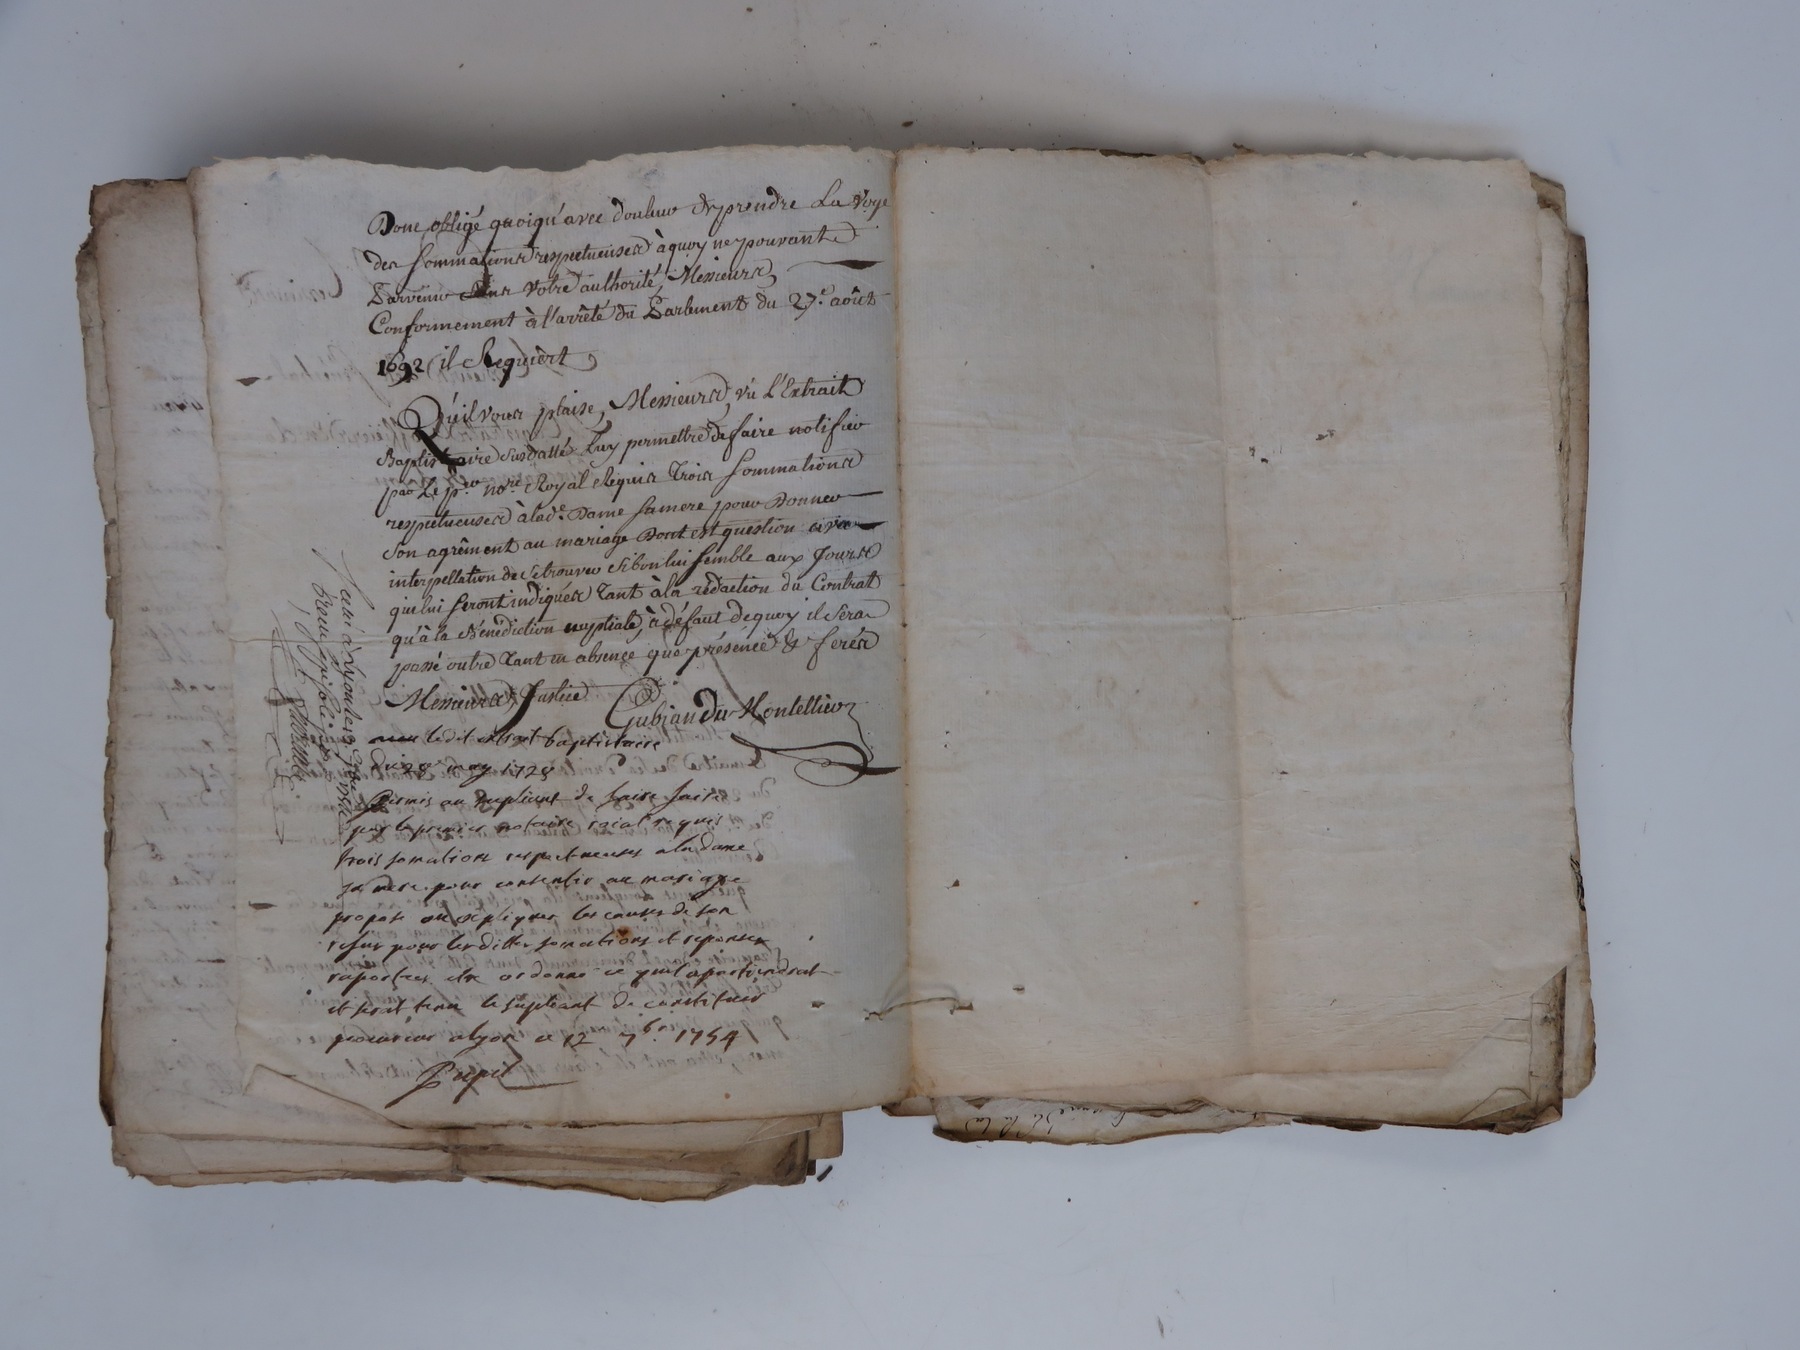 Donc obligé quoiqu'avec douleur de prendre La Voye
des sommations respectueuses à quoy ne pouvant
Parvenir sans Votre authorité, Messieurs,
Conformement à l'arrêté du Parlement du 27.e août
1692 il Requiert
Qu'il vous plaise, Messieurs, vû L'Extrait
Baptistaire susdatté Luy permettre de faire notifier
par Le p.er no.re Royal Requis Trois sommations
respectueuses à lad.e Dame sa mere pour Donner
son agrêment au mariage Dont est question avec
interpellation de se trouver si bon lui semble aux Jours
qui lui seront indiqués Tant à la rédaction du Contrat
qu'à la Bénédiction nuptiale, à défaut de quoy il sera
passé outre Tant en absence que présence & ferés
Messieurs Justice Gubian du Montellier
veu ledit extrait baptistaire
du 28e may 1728
Permis au supliant de faire faire
par le premier notaire roial requis
trois somations respectueuses a la dame
sa mere pour consentir au mariage
proposé ou expliquer les causes de son
refus pour lesdittes somations et reponses
raportées etre ordonné ce quil apartiendrat
et serat tenu le supliant de constituer
procureur a lyon ce 12e 7bre. 1754
Pupil